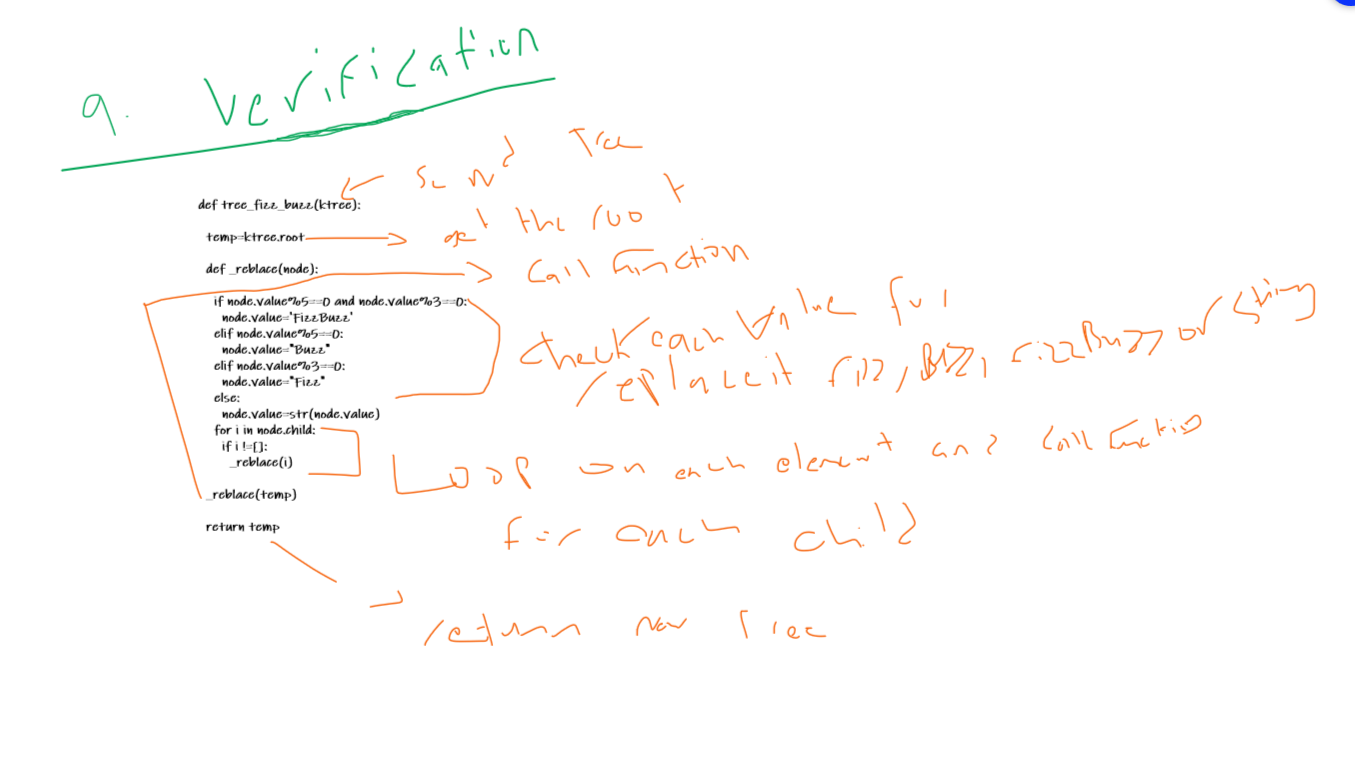 9. Verification
send Tree
def tree_fizz_buzz(ktree):
temp=ktree.root
get the root
def _reblace(node):
Call Function
if node.value%5==0 and node.value%3==0:
node.value='FizzBuzz'
elif node.value%5==0:
node.value="Buzz"
elif node.value%3==0:
node.value="Fizz"
else:
node.value=str(node.value)
check each value for
replace it fizz, Buzz, FizzBuzz or string
for i in node.child:
if i !=[]:
_reblace(i)
Loop on each element and call function
for each child
_reblace(temp)
return temp
return new Tree